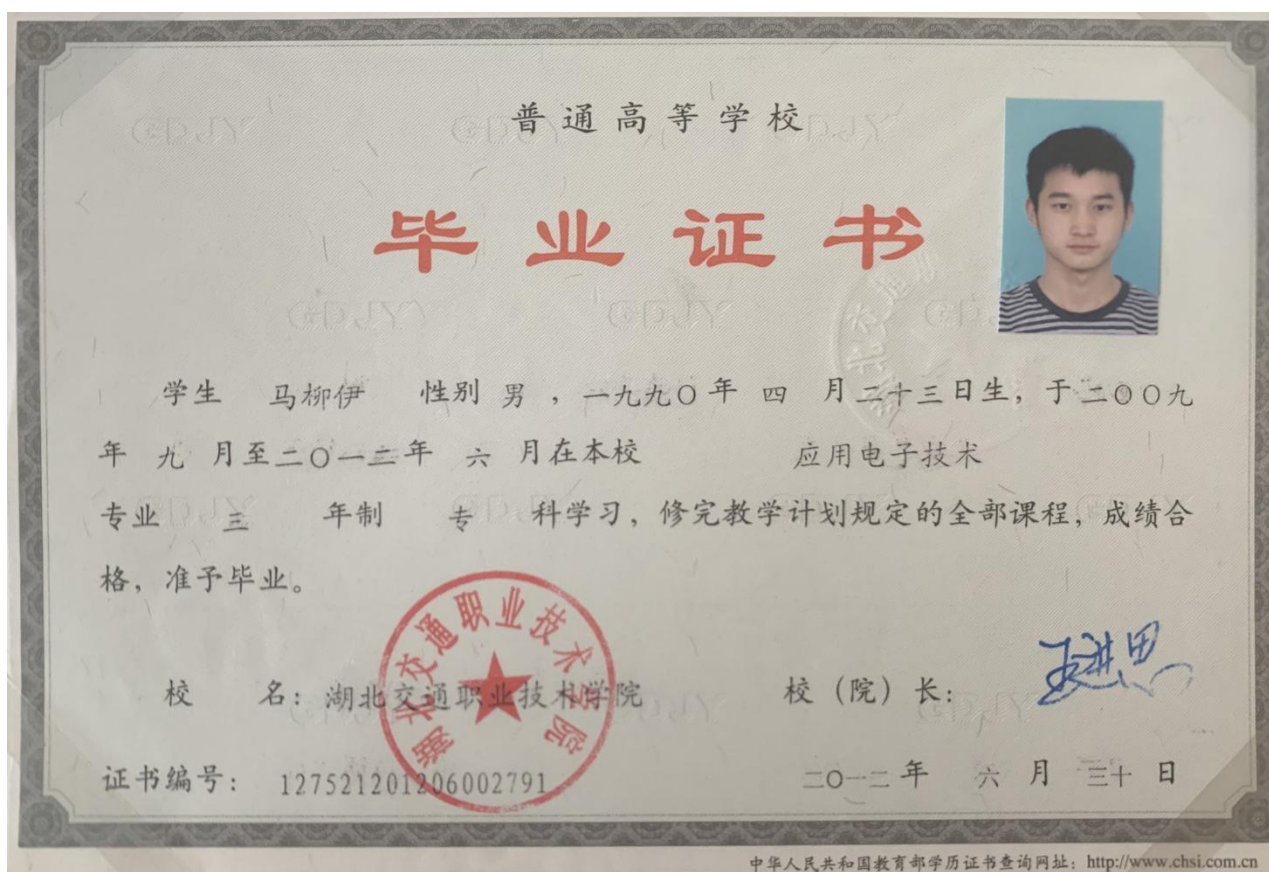 普通高等学校
毕业证书
学生 马柳伊 性别 男 ，一九九〇年 四 月二十三日生，于二〇〇九
年 九 月至二〇一二年 六 月在本校 应用电子技术
专业 三 年制 专 科学习，修完教学计划规定的全部课程，成绩合
格，准予毕业。
湖北交通职业技术学院
校 名：湖北交通职业技术学院 校（院）长：
证书编号： 127521201206002791 二〇一二年 六 月 三十 日
中华人民共和国教育部学历证书查询网址：http://www.chsi.com.cn